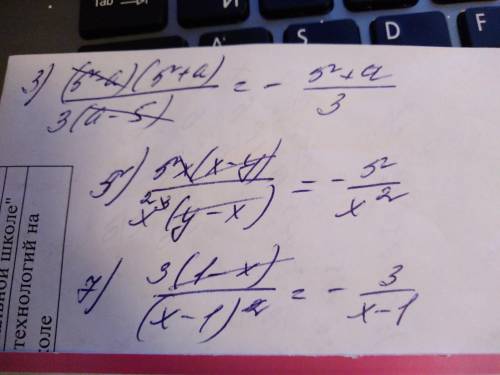 Tab
A
S
D
F
3) (5-a)(5+a) / 3(a-5) = - 5+a / 3
5) 5x(x-y) / x³(y-x) = - 5 / x²
7) 3(1-x) / (x-1)² = - 3 / x-1
альной школе"
технологий на
коле